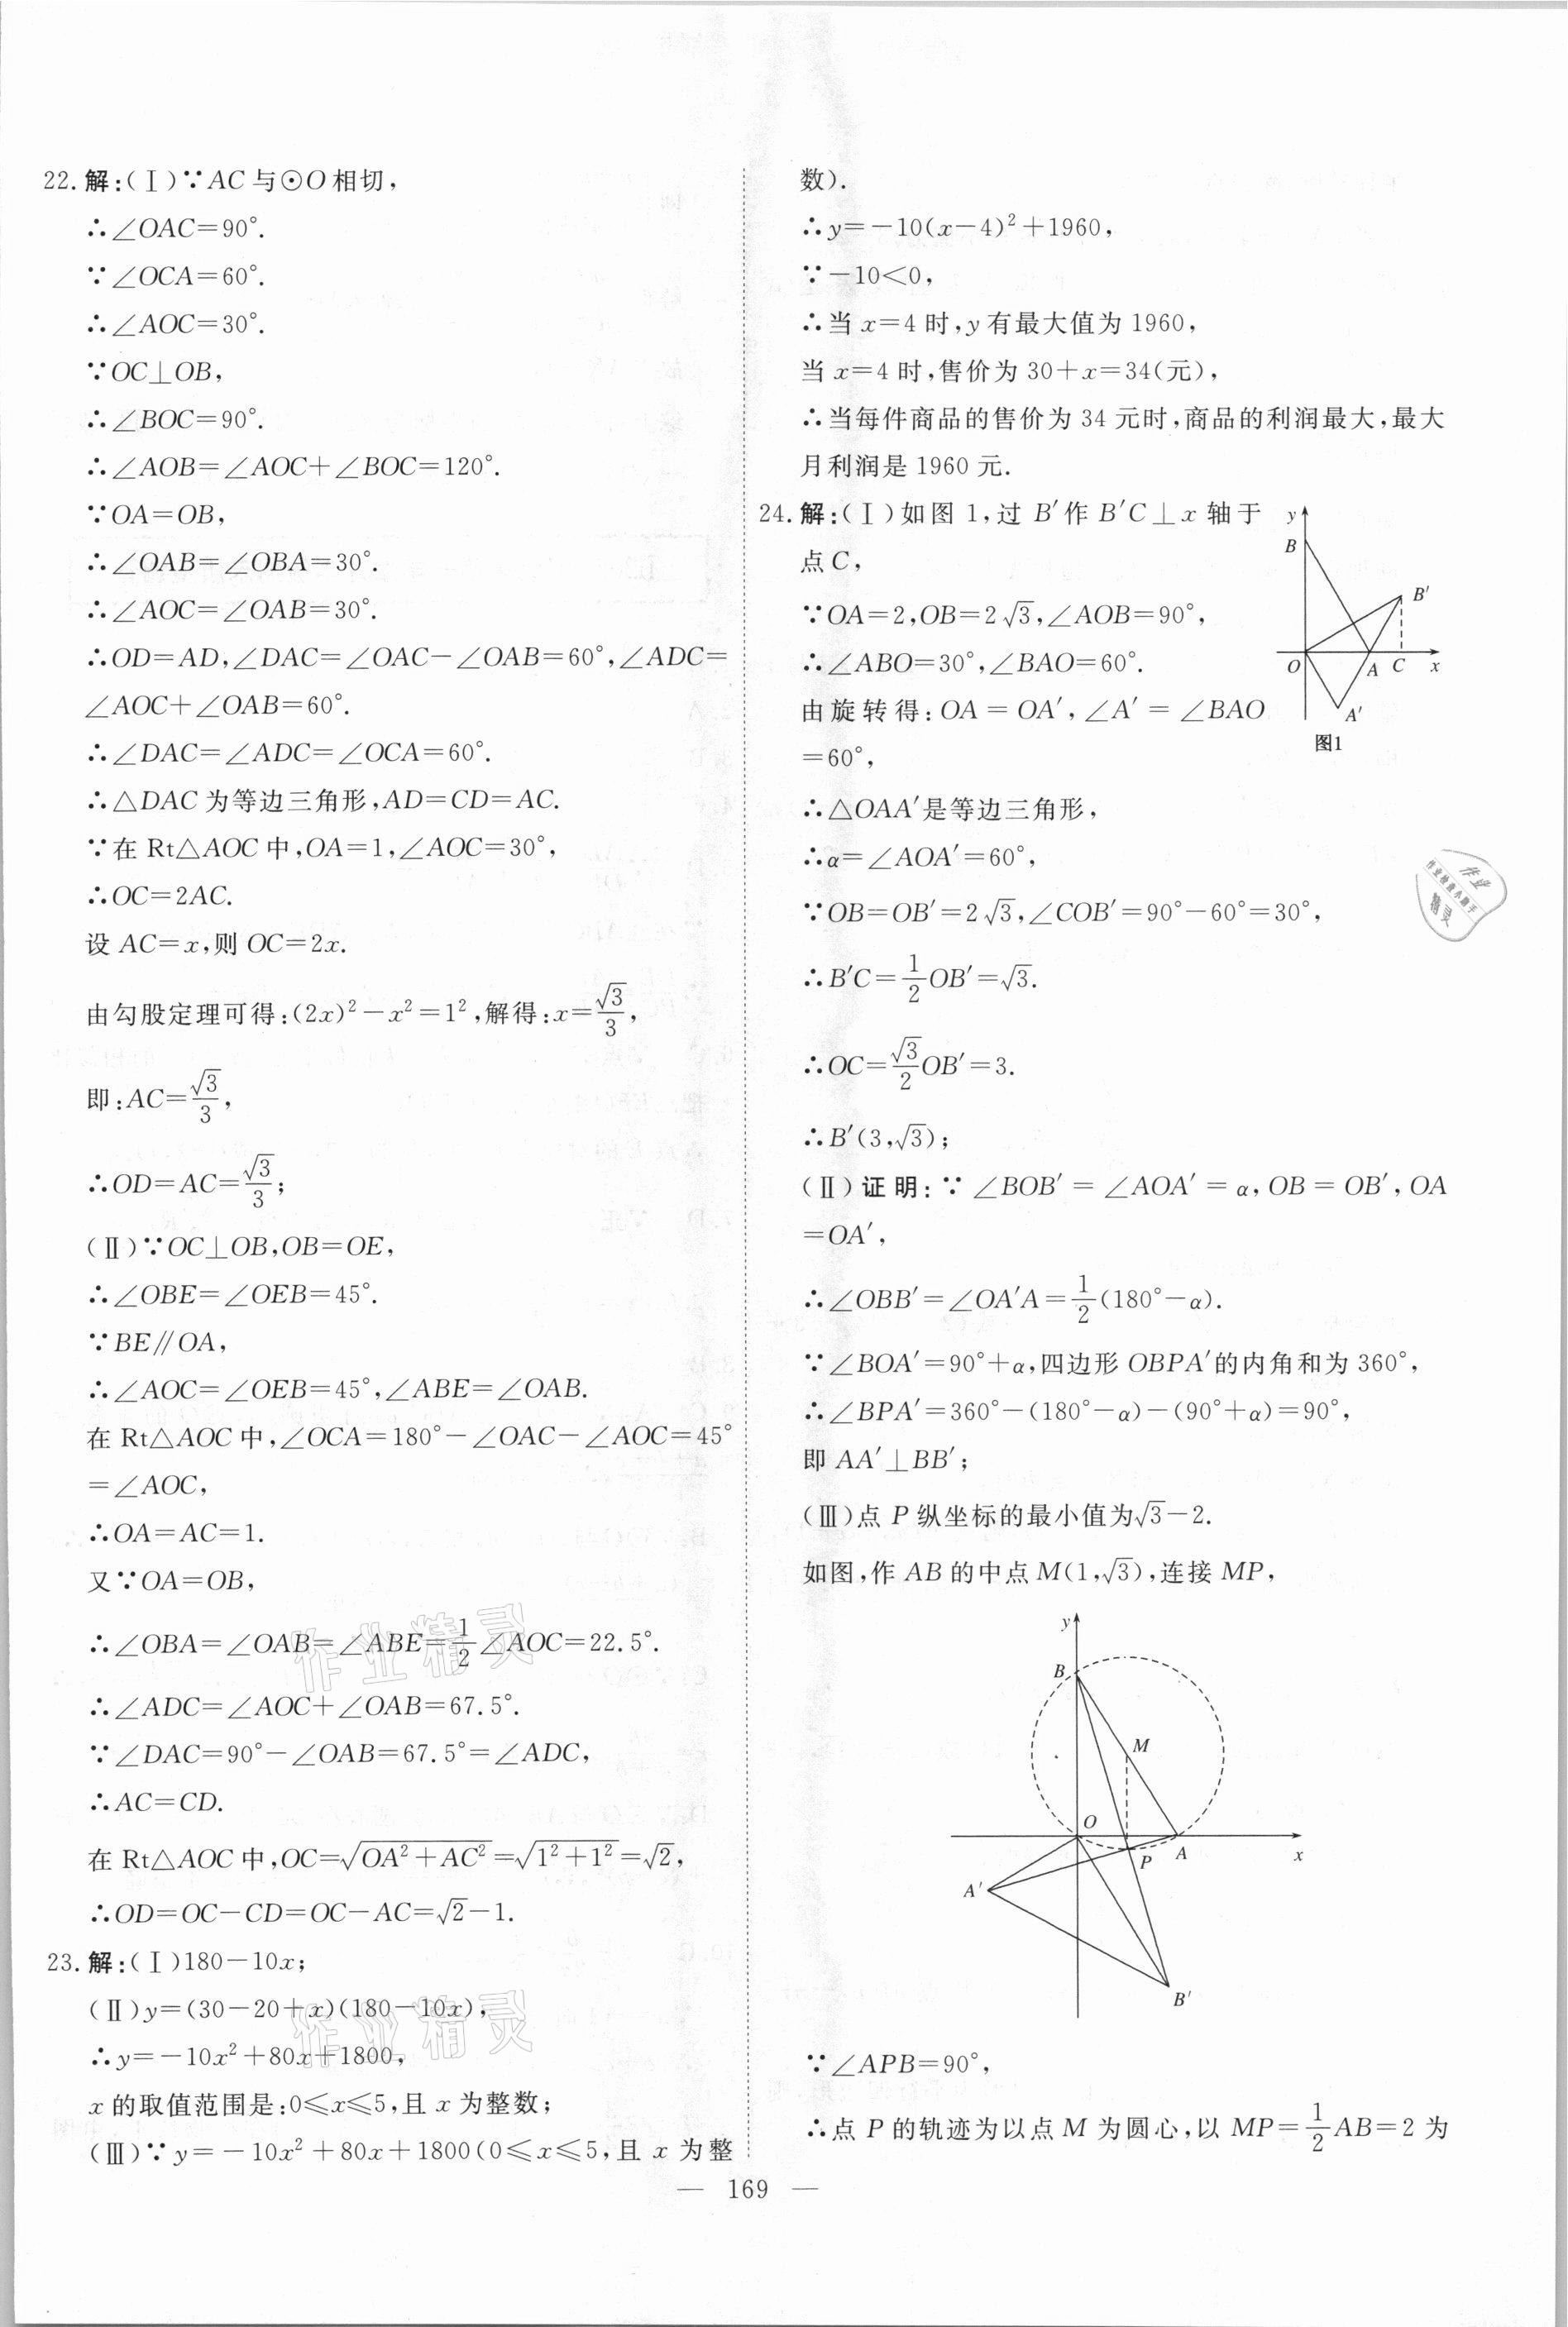 22. 解:(Ⅰ)∵AC与⊙O相切,
∴∠OAC=90°.
∵∠OCA=60°.
∴∠AOC=30°.
∵OC⊥OB,
∴∠BOC=90°.
∴∠AOB=∠AOC+∠BOC=120°.
∵OA=OB,
∴∠OAB=∠OBA=30°.
∴∠AOC=∠OAB=30°.
∴OD=AD,∠DAC=∠OAC-∠OAB=60°,∠ADC=
∠AOC+∠OAB=60°.
∴∠DAC=∠ADC=∠OCA=60°.
∴△DAC为等边三角形,AD=CD=AC.
∵在Rt△AOC中,OA=1,∠AOC=30°,
∴OC=2AC.
设AC=x,则OC=2x.
由勾股定理可得:(2x)²-x²=1²,解得:x=√3/3,
即:AC=√3/3,
∴OD=AC=√3/3;
(Ⅱ)∵OC⊥OB,OB=OE,
∴∠OBE=∠OEB=45°.
∵BE∥OA,
∴∠AOC=∠OEB=45°,∠ABE=∠OAB.
在Rt△AOC中,∠OCA=180°-∠OAC-∠AOC=45°
=∠AOC,
∴OA=AC=1.
又∵OA=OB,
∴∠OBA=∠OAB=∠ABE=1/2∠AOC=22.5°.
∴∠ADC=∠AOC+∠OAB=67.5°.
∵∠DAC=90°-∠OAB=67.5°=∠ADC,
∴AC=CD.
在Rt△AOC中,OC=√(OA²+AC²)=√(1²+1²)=√2,
∴OD=OC-CD=OC-AC=√2-1.
23. 解:(Ⅰ)180-10x;
(Ⅱ)y=(30-20+x)(180-10x),
∴y=-10x²+80x+1800,
x的取值范围是:0≤x≤5,且x为整数;
(Ⅲ)∵y=-10x²+80x+1800(0≤x≤5,且x为整
数).
∴y=-10(x-4)²+1960,
∵-10<0,
∴当x=4时,y有最大值为1960,
当x=4时,售价为30+x=34(元),
∴当每件商品的售价为34元时,商品的利润最大,最大
月利润是1960元.
24. 解:(Ⅰ)如图1,过B′作B′C⊥x轴于
点C,
∵OA=2,OB=2√3,∠AOB=90°,
∴∠ABO=30°,∠BAO=60°.
由旋转得:OA=OA′,∠A′=∠BAO
=60°,
y
B
B′
O
A
C
x
A′
图1
∴△OAA′是等边三角形,
∴α=∠AOA′=60°,
∵OB=OB′=2√3,∠COB′=90°-60°=30°,
∴B′C=1/2OB′=√3.
∴OC=√3/2OB′=3.
∴B′(3,√3);
(Ⅱ)证明:∵∠BOB′=∠AOA′=α,OB=OB′,OA
=OA′,
∴∠OBB′=∠OA′A=1/2(180°-α).
∵∠BOA′=90°+α,四边形OBPA′的内角和为360°,
∴∠BPA′=360°-(180°-α)-(90°+α)=90°,
即AA′⊥BB′;
(Ⅲ)点P纵坐标的最小值为√3-2.
如图,作AB的中点M(1,√3),连接MP,
y
B
M
O
P
A
x
A′
B′
∵∠APB=90°,
∴点P的轨迹为以点M为圆心,以MP=1/2AB=2为
— 169 —
作业精灵
作业精灵
作业
作业检查小助手
精灵